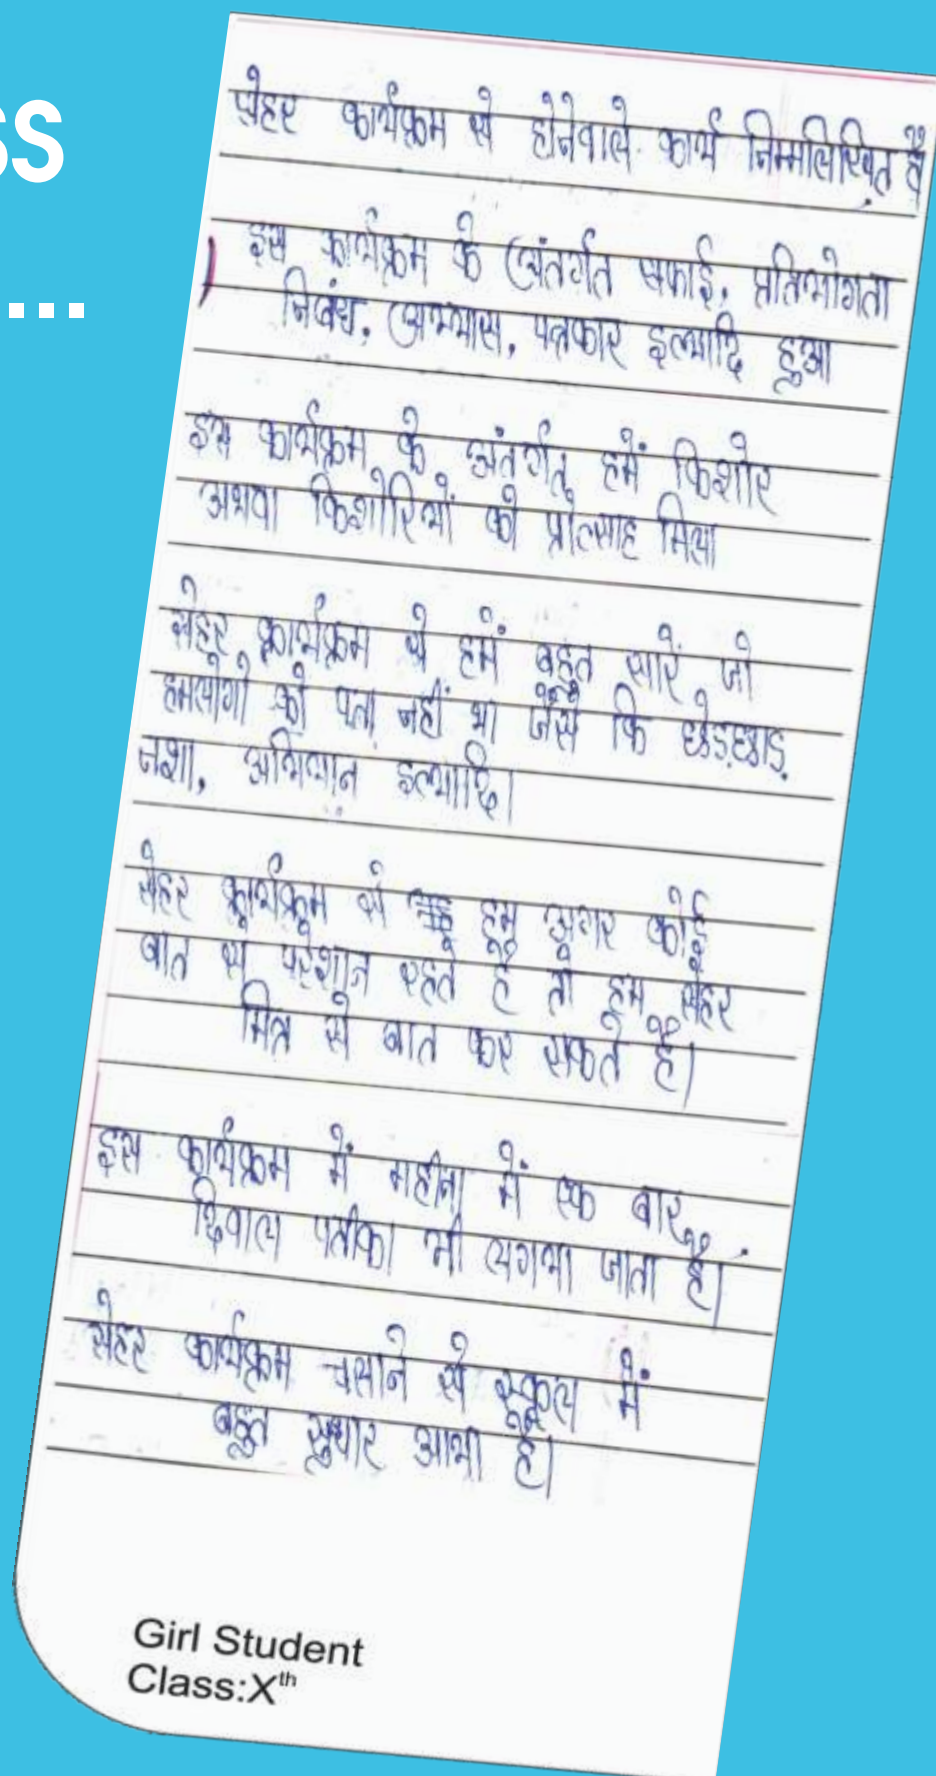 SS
....
सेहर कार्यक्रम से होनेवाले कार्य निम्नलिखित है
इस कार्यक्रम के अंतर्गत सफाई, प्रतियोगता
निबंध, अभ्यास, पत्रकार इत्यादि हुआ
इस कार्यक्रम के अंतर्गत हमें किशोर
अथवा किशोरियों को प्रोत्साह मिला
सेहर कार्यक्रम से हमें बहुत सारें जो
हमलोगो को पता नहीं था जैसे कि छेड़छाड़
नशा, अभियान इत्यादि।
सेहर कार्यक्रम से हम अगर कोई
बात से परेशान रहते है तो हम सेहर
मित्र से बात कर सकते है।
इस कार्यक्रम में महीना में एक बार
दिवाल पतीका भी लगया जाता है।
सेहर कार्यक्रम चलाने से स्कूल में
बहुत सुधार आया है।
Girl Student
Class:Xth